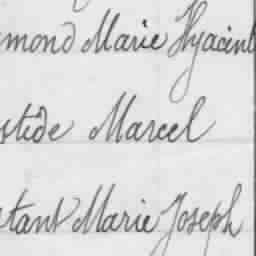 mond Marie Hyacint
stide Marcel
stant Marie Joseph